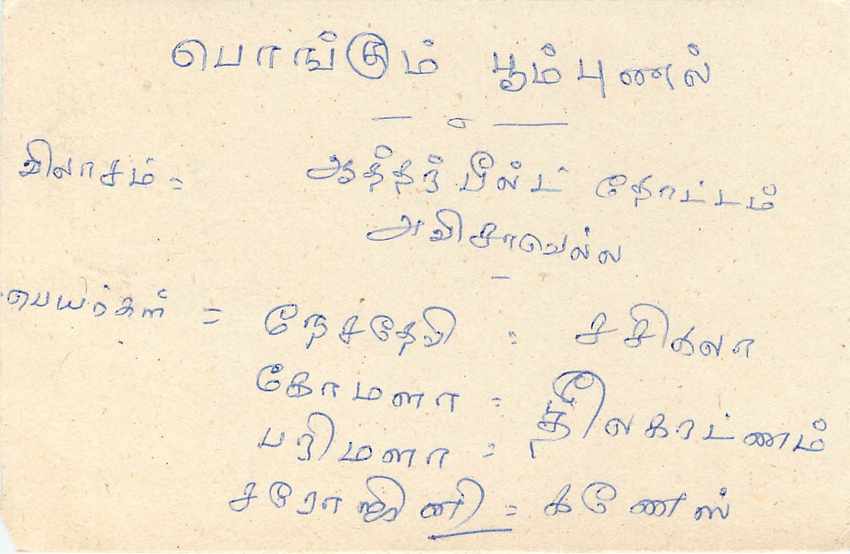 பொங்கும் பூம்புனல்
விலாசம் = ஆத்தர் பீல்ட் தோட்டம்
அவிசாவெல்ல
பெயர்கள் = நேசதேவி : சசிகலா
கோமளா =
நீலகரட்ணம்
பரிமளா =
சரோஜினி = கணேஸ்